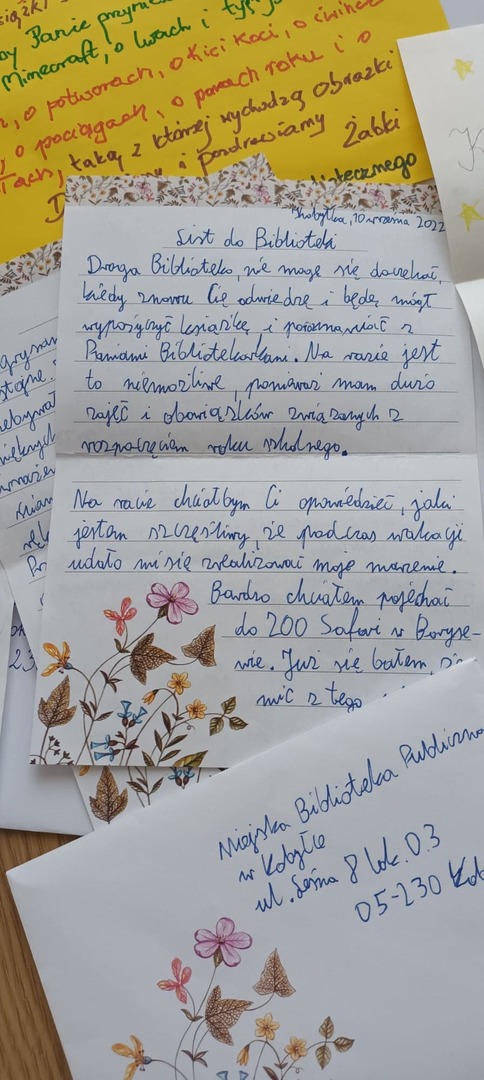 oy Panie
Minecraft, o lwach i
o potworach, o Kici Koci, o
o pociągach, o porach roku i o
taką z której wychodzą obrazki
i pozdrawiamy Żabki
Kobyłka, 10 września 2022
List do Biblioteki
Droga Biblioteko, nie mogę się doczekać,
kiedy znowu Cię odwiedzę i będę mógł
wypożyczyć książkę i porozmawiać z
Paniami Bibliotekarkami. Na razie jest
to niemożliwe, ponieważ mam dużo
zajęć i obowiązków związanych z
rozpoczęciem roku szkolnego.
Na razie chciałbym Ci opowiedzieć, jaki
jestem szczęśliwy, że podczas wakacji
udało mi się zrealizować moje marzenie.
Bardzo chciałem pojechać
do ZOO Safari w Boryse-
wie. Już się bałem, że
nic z tego
Miejska Biblioteka Publiczna
w Kobyłce
ul. Leśna 8 lok. 0.3
05-230 Kob